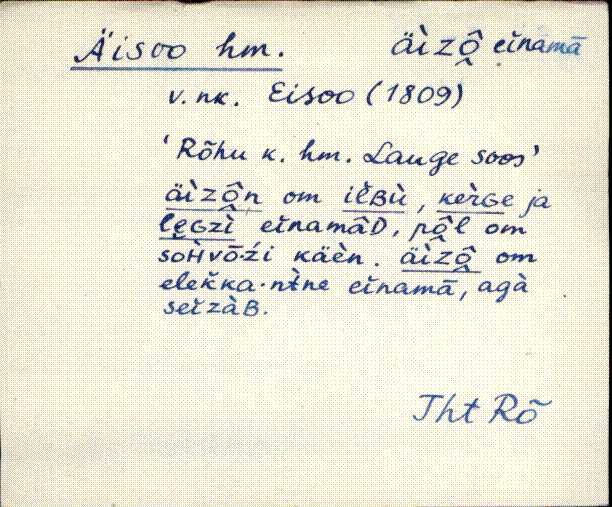 Äisoo hm. äì̯zô̭ eĭnamā
v. nk. Eisoo (1809)
‘Rõhu k. hm. Lauge soos’
äìzô̭n om iĕ̬ʙù, kèrɢe ja
lḙɢzì eĭnamâᴅ, pô̭l om
soʜ̀vō·źi käèn. äìzô̭ om
elek̆ka·nt̀ne eĭnamā, agà
seĭzàʙ.
Tht Rõ